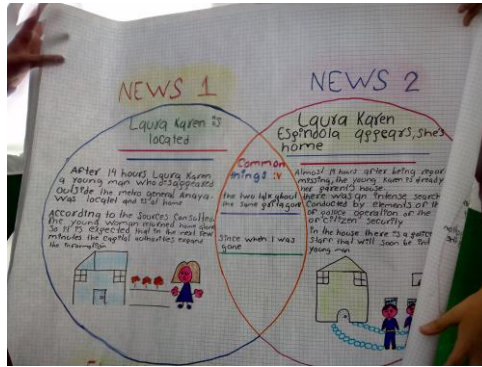 NEWS 1
Laura Karen is
located
After 19 hours Laura Karen,
a young man who disappeared
outside the metro general Anaya.
was locatel and is at home
According to the Sources Consulted,
the young woman returned home alone
So it is expected that in the next few
minutes the capital authorities expand
the information
Common
things
the two talk about
the same girl gone
Since when I was
gone
NEWS 2
Laura Karen
Espindola appears, she's
home
Almost 19 hours after being repor
missing, the young Karen is already
her parent's house.
there was an intense search
Conducted by elements of th
of police operation of the
of citizen security
in the house there is a
staff that will soon be
young man